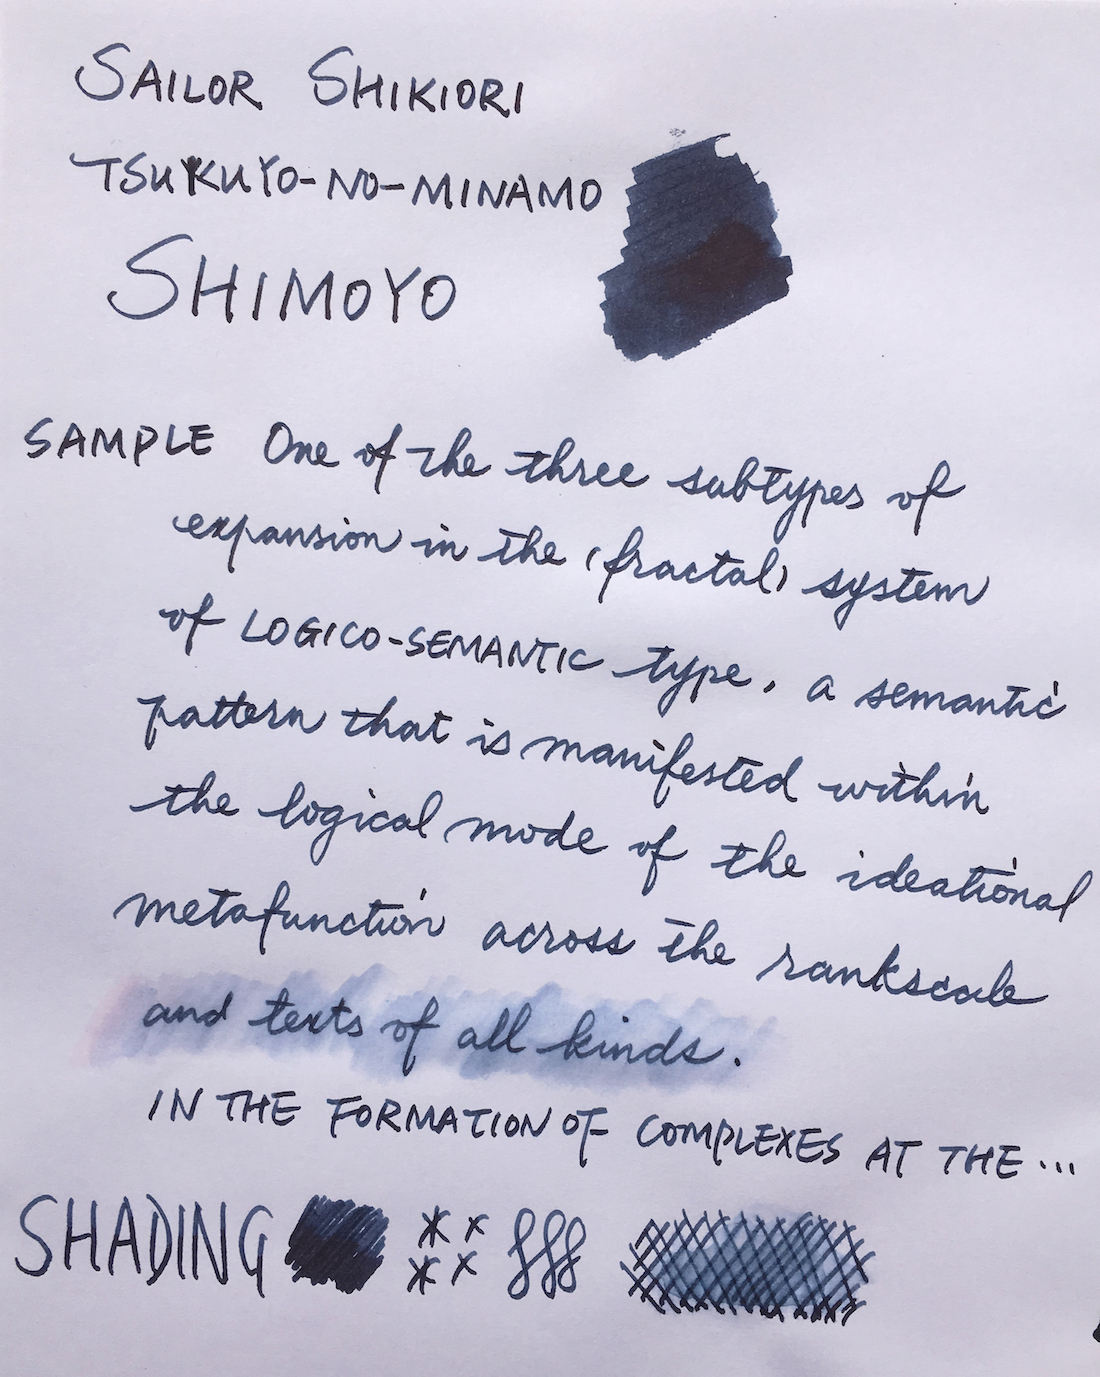 SAILOR SHIKIORI
TSUKUYO-NO-MINAMO
SHIMOYO
SAMPLE One of the three subtypes of
expansion in the (fractal) system
of LOGICO-SEMANTIC type, a semantic
pattern that is manifested within
the logical mode of the ideational
metafunction across the rankscale
and texts of all kinds.
IN THE FORMATION OF COMPLEXES AT THE...
SHADING